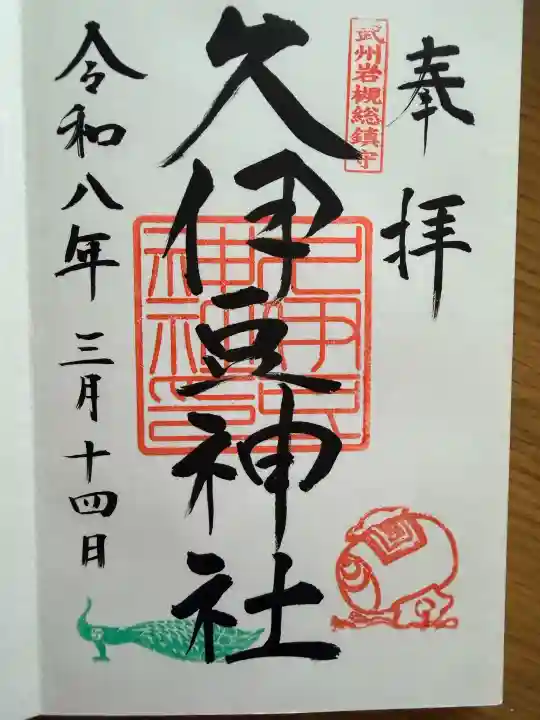 奉拝
武州岩槻総鎮守
久伊豆神社
久伊豆神社印
令和八年 三月十四日